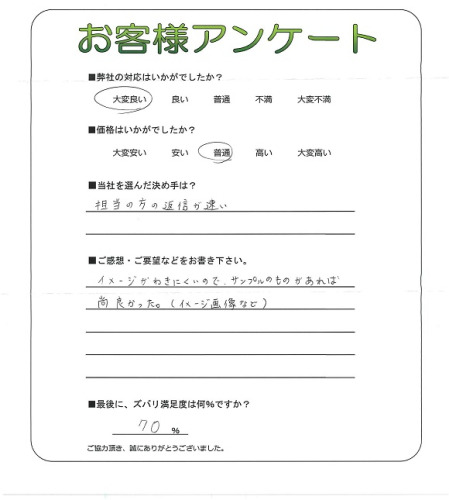 お客様アンケート
■弊社の対応はいかがでしたか？
大変良い 良い 普通 不満 大変不満
■価格はいかがでしたか？
大変安い 安い 普通 高い 大変高い
■当社を選んだ決め手は？
担当の方の返信が速い
■ご感想・ご要望などをお書き下さい。
イメージがわきにくいので、サンプルのものがあれば
尚良かった。（イメージ画像など）
■最後に、ズバリ満足度は何％ですか？
70 ％
ご協力頂き、誠にありがとうございました。